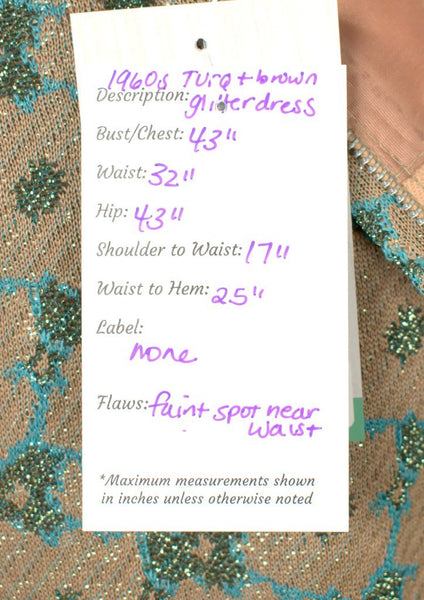 1960s Turq + brown
Description: glitter dress
Bust/Chest: 43"
Waist: 32"
Hip: 43"
Shoulder to Waist: 17"
Waist to Hem: 25"
Label:
none
Flaws: faint spot near
waist
*Maximum measurements shown
in inches unless otherwise noted